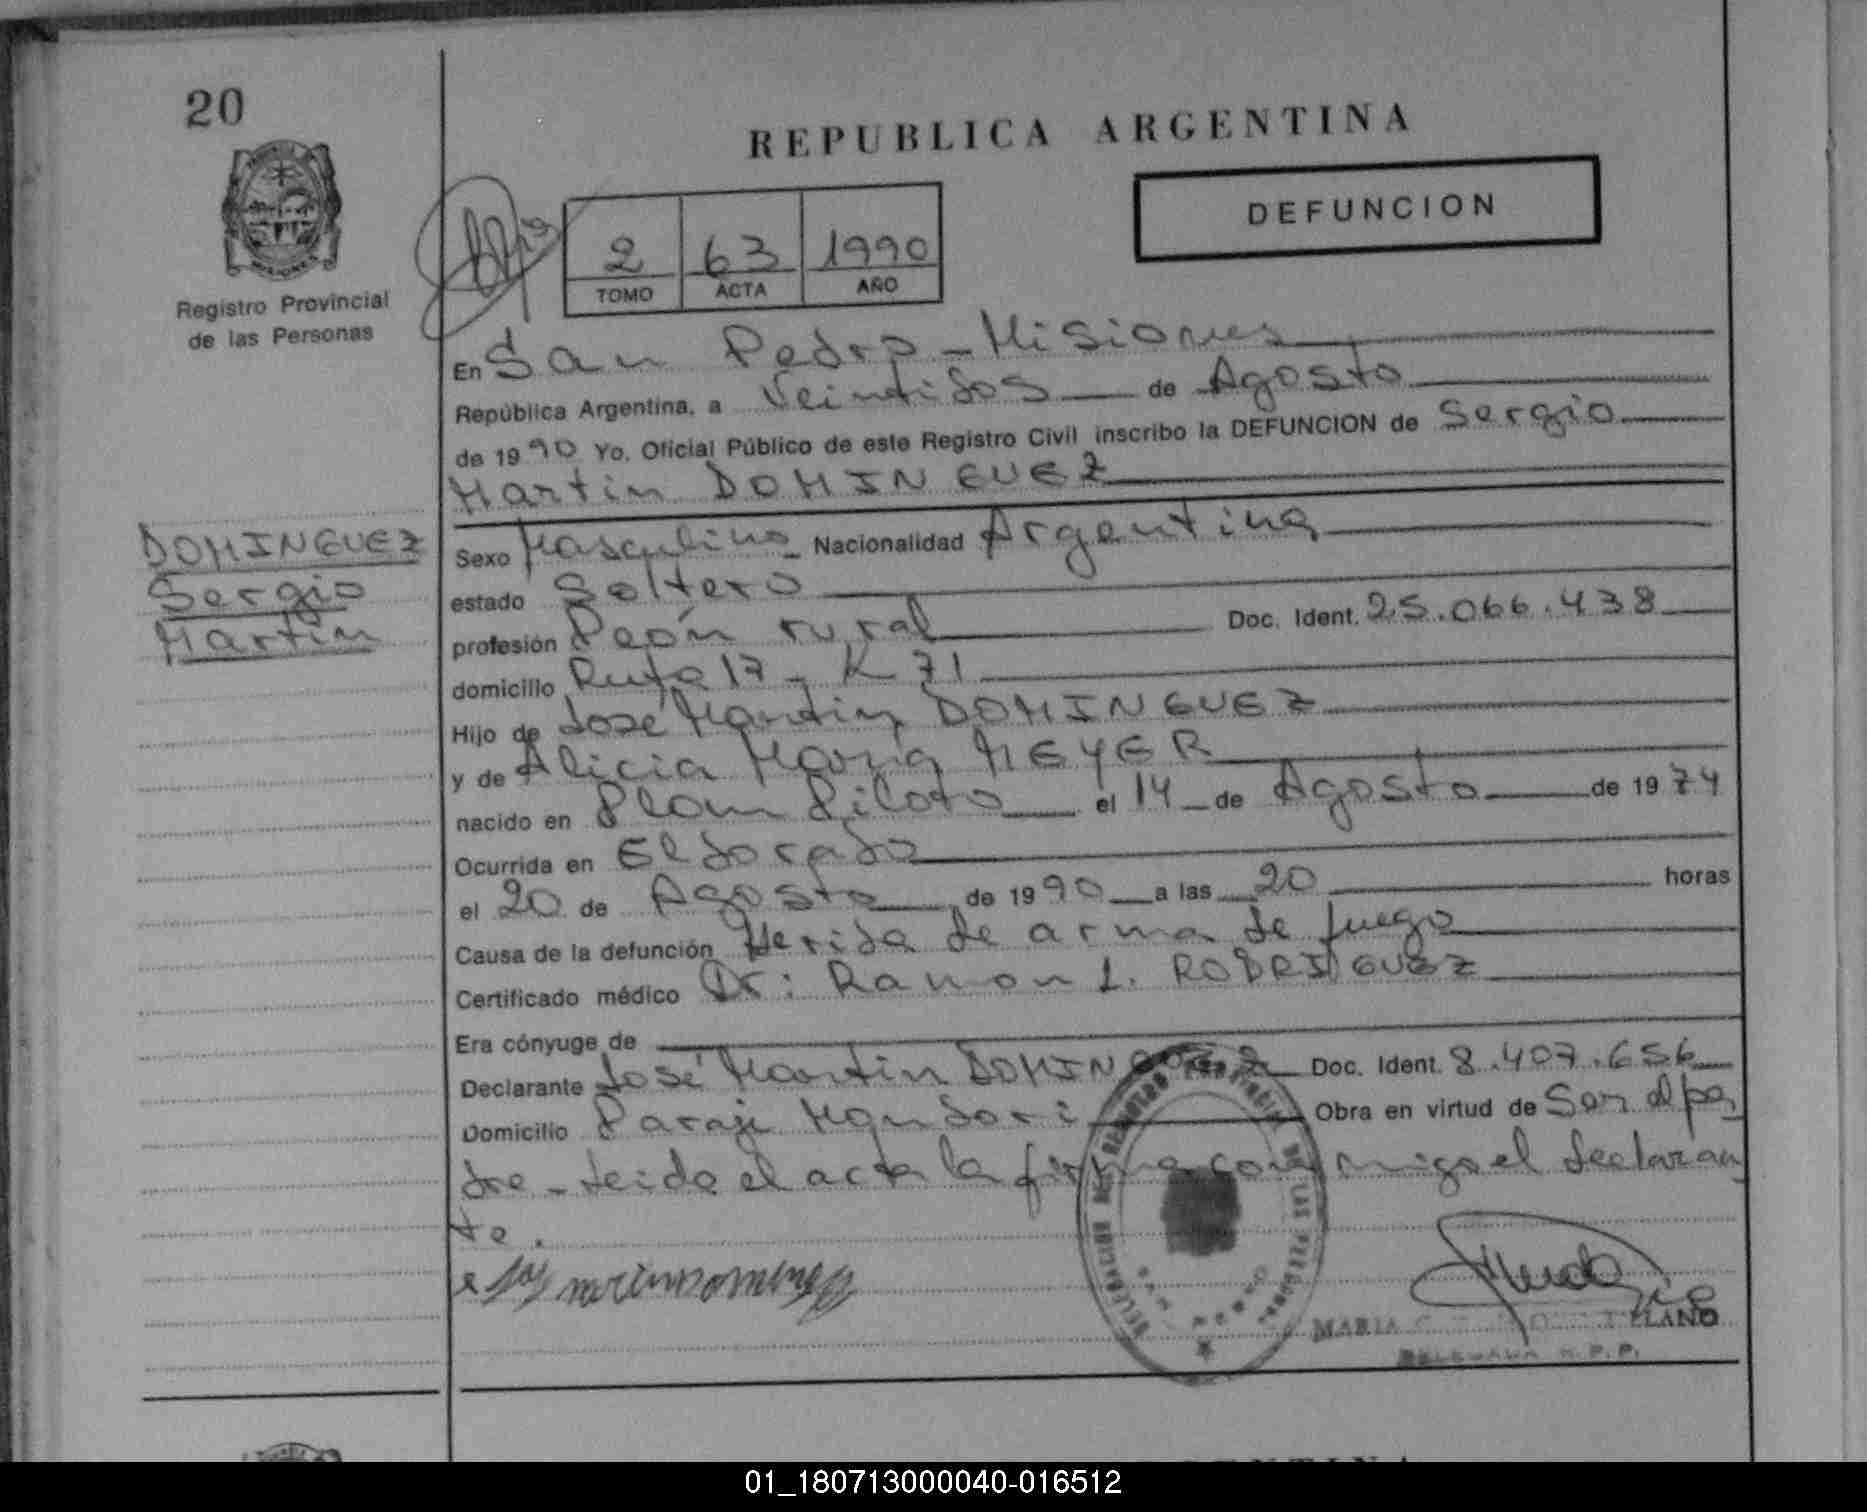 20
REPUBLICA ARGENTINA
DEFUNCION
MISIONES
Registro Provincial
de las Personas
2 63 1990
TOMO ACTA AÑO
En San Pedro - Misiones
República Argentina, a Veintidos de Agosto
de 1990 Yo, Oficial Público de este Registro Civil inscribo la DEFUNCION de Sergio
Martin DOMINGUEZ
DOMINGUEZ
Sergio
Martin
Sexo Masculino Nacionalidad Argentina
estado Soltero
profesión Peón rural Doc. Ident. 25.066.438
domicilio Ruta 17 - K 71
Hijo de José Martin DOMINGUEZ
y de Alicia Maria MEYER
nacido en Plan Piloto el 14 de Agosto de 1974
Ocurrida en Eldorado
el 20 de Agosto de 1990 a las 20 horas
Causa de la defunción Herida de arma de fuego
Certificado médico Dr: Ramon L. RODRIGUEZ
Era cónyuge de
Declarante José Martin DOMINGUEZ Doc. Ident. 8.407.656
Domicilio Paraje Obra en virtud de Ser el pa
dre - Leida el acta la firma con migo el declaran
te.
MARIA
DELEGADA R.P.P.
01_180713000040-016512